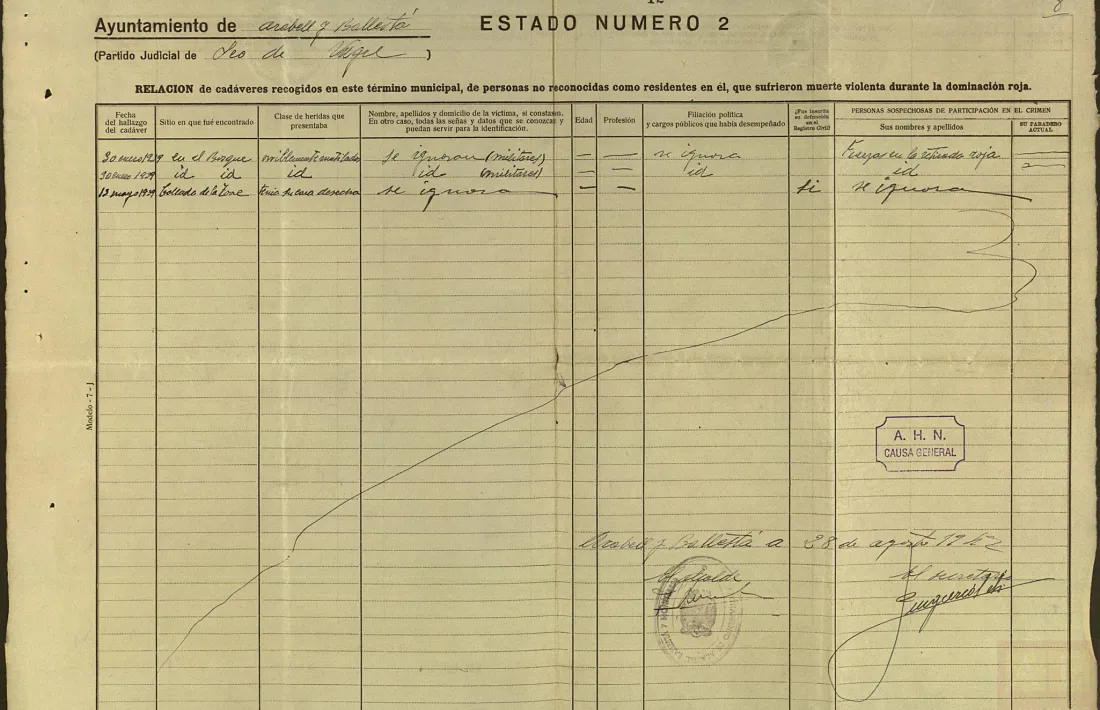 12
8
Ayuntamiento de Arabell y Ballestá
ESTADO NUMERO 2
(Partido Judicial de Seo de Urgel)
RELACION de cadáveres recogidos en este término municipal, de personas no reconocidas como residentes en él, que sufrieron muerte violenta durante la dominación roja.
Fecha del hallazgo del cadáver
Sitio en que fué encontrado
Clase de heridas que presentaba
Nombre, apellidos y domicilio de la víctima, si constasen. En otro caso, todas las señas y datos que se conozcan y puedan servir para la identificación.
Edad
Profesión
Filiación política y cargos públicos que había desempeñado
¿Fue inscrita su defunción en el Registro Civil?
PERSONAS SOSPECHOSAS DE PARTICIPACIÓN EN EL CRIMEN
Sus nombres y apellidos
SU PARADERO ACTUAL
30 enero 1939 en el Bosque se ignoran (militares) — — se ignora Fuerzas en la retirada roja —
30 enero 1939 id id id id (militares) — — id id
12 mayo 1939 Collado de la Torre se ignora — — si se ignora
Modelo - 7 - J
A. H. N.
CAUSA GENERAL
Arabell y Ballestá a 28 de agosto 1942
El Alcalde
El secretario